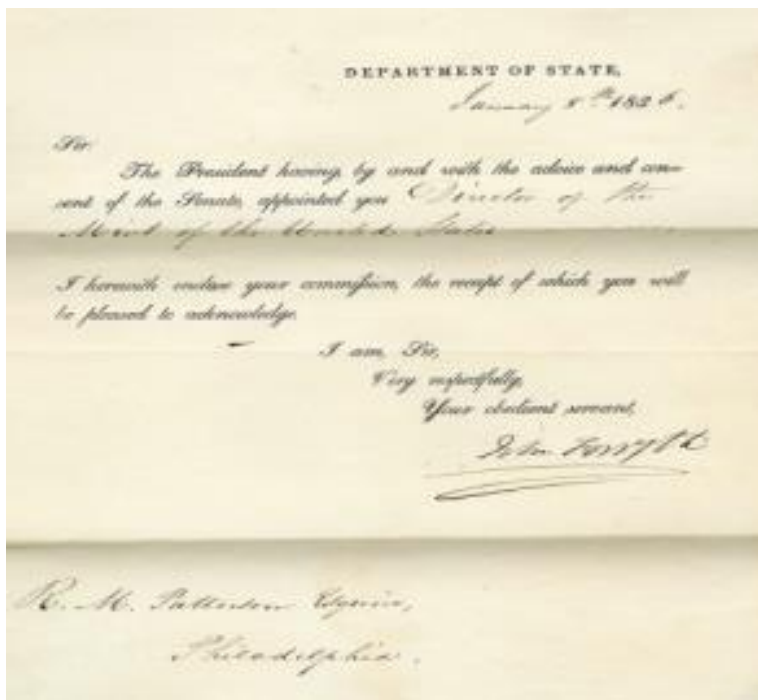 DEPARTMENT OF STATE,
January 8th 1836.
Sir.
The President having, by and with the advice and con-
sent of the Senate, appointed you Director of the
Mint of the United States
I herewith enclose your commiſsion, the receipt of which you will
be pleased to acknowledge.
I am, Sir,
Very respectfully,
Your obedient servant,
John Forsyth
R. M. Patterson Esquire,
Philadelphia.